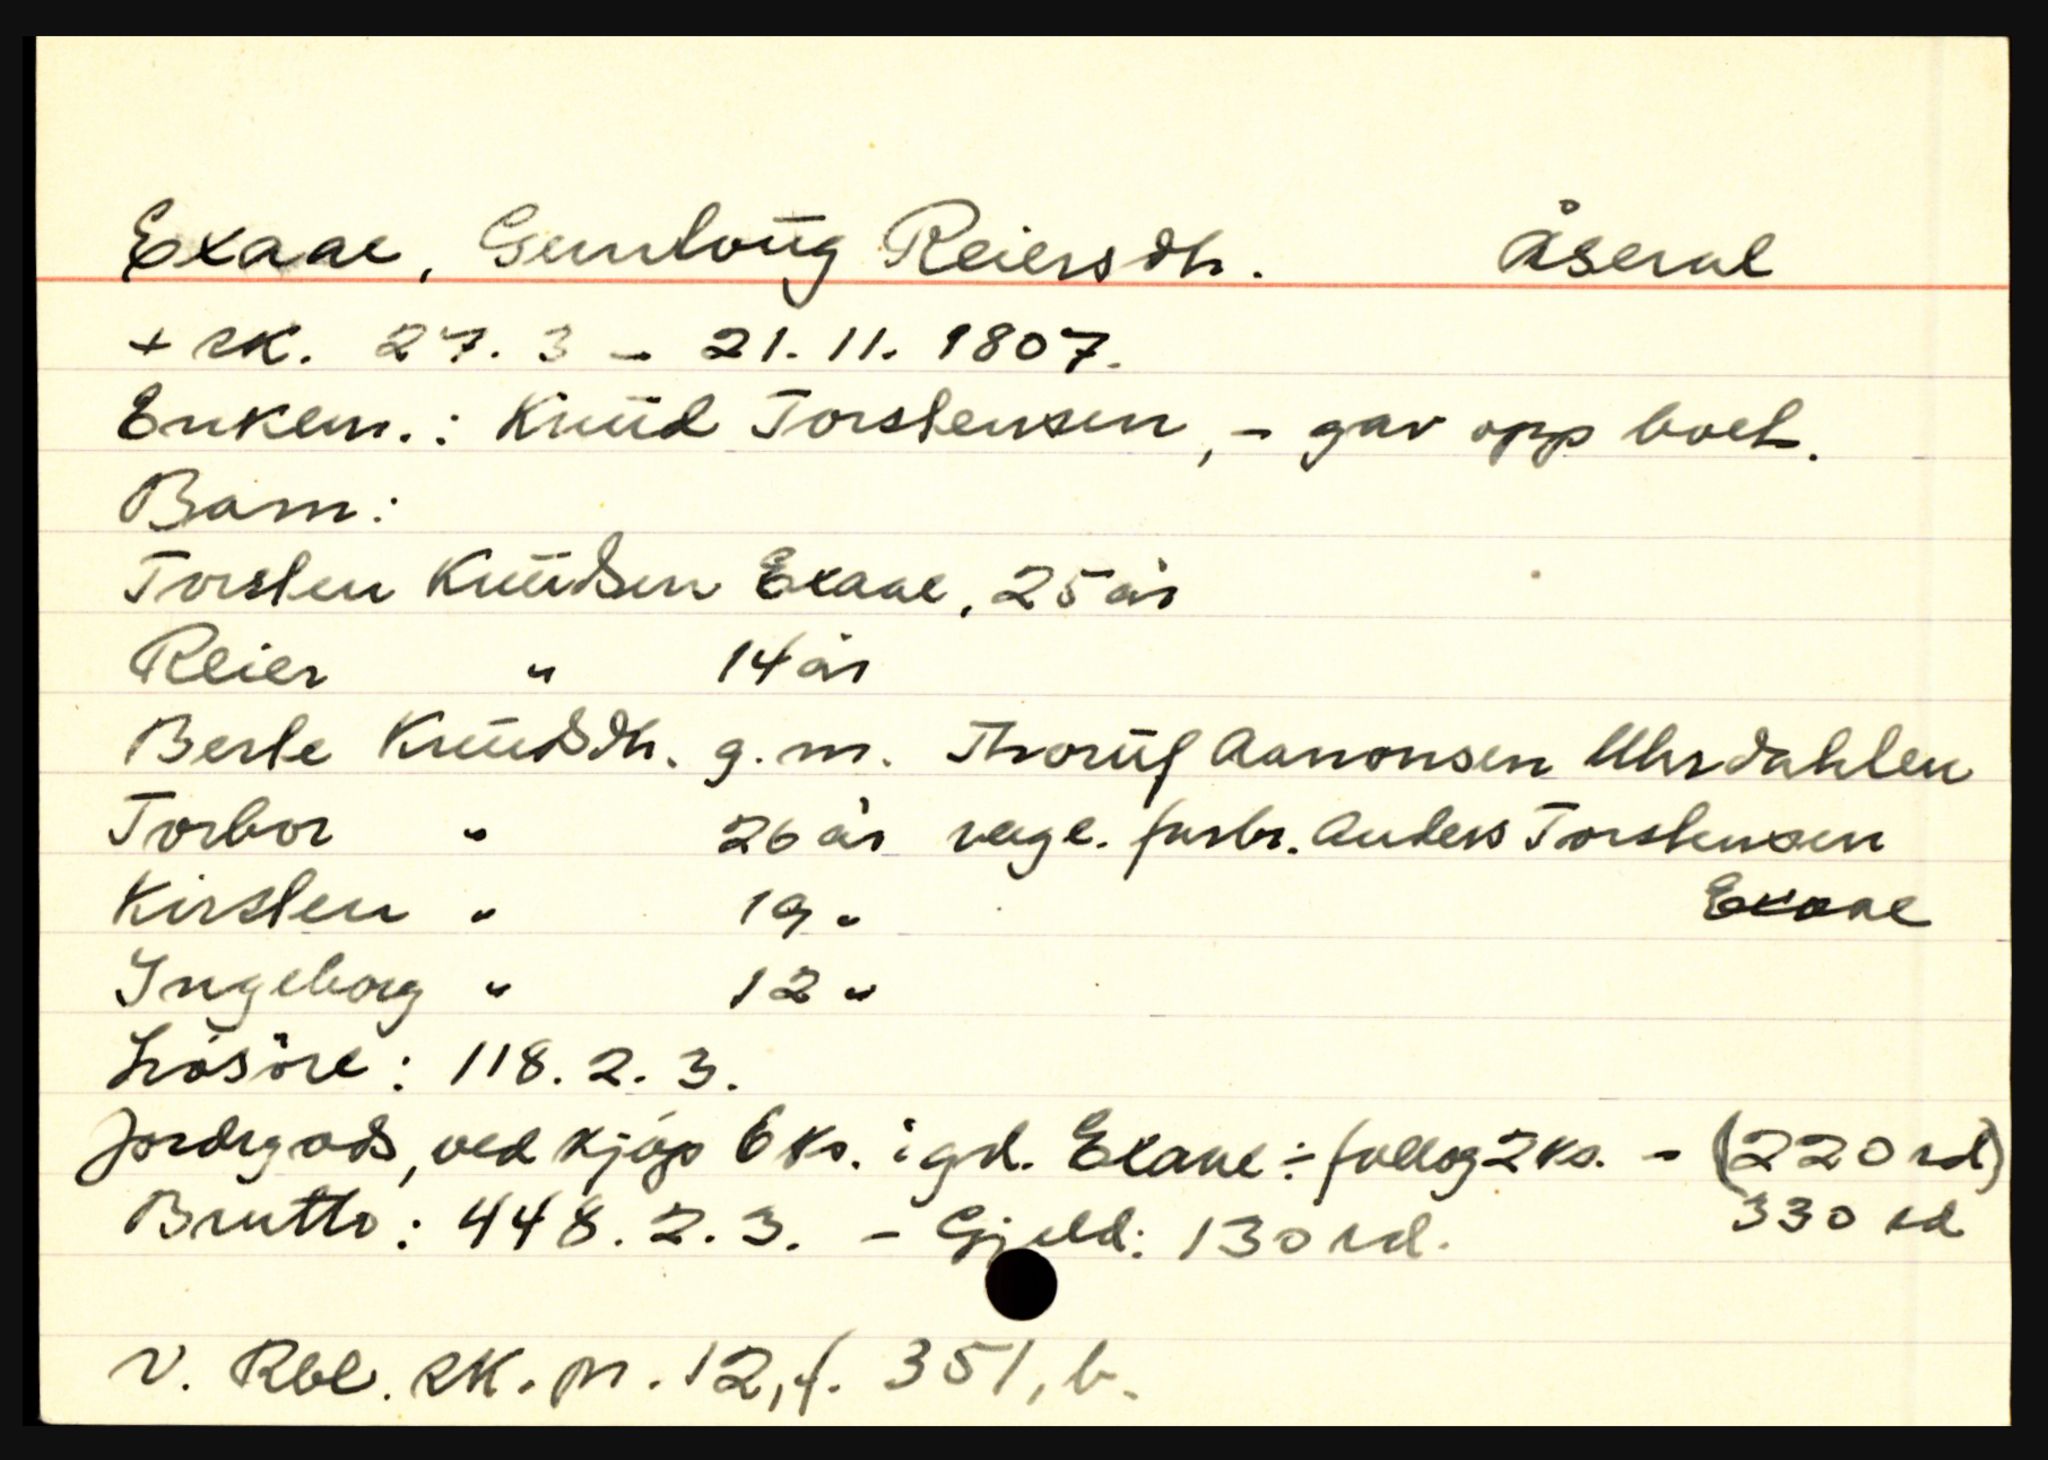 Exaae, Gunloug Reiersdtr. Åseral
+ sk. 27. 3 - 21. 11. 1807.
Enkem.: Knud Torstensen, - gav opp boet.
Barn:
Torsten Knudsen Exaae, 25 år
Reier " 14 år
Berte Knudsdtr. g. m. Thoruf Aanonsen Uhrdahlen
Torbor " 26 år verge. farbr. Anders Torstensen
Kirsten " 19 " Exaae
Ingeborg " 12 "
Lösöre: 118. 2. 3.
Jordegods, ved kjöp 6 ks. i gd. Exaae ÷ follog 2 ks. - (220 rd)
Brutto: 448. 2. 3. - Gjeld: 130 rd. 330 rd
V. Rbl. sk. pr. 12, f. 351, b.